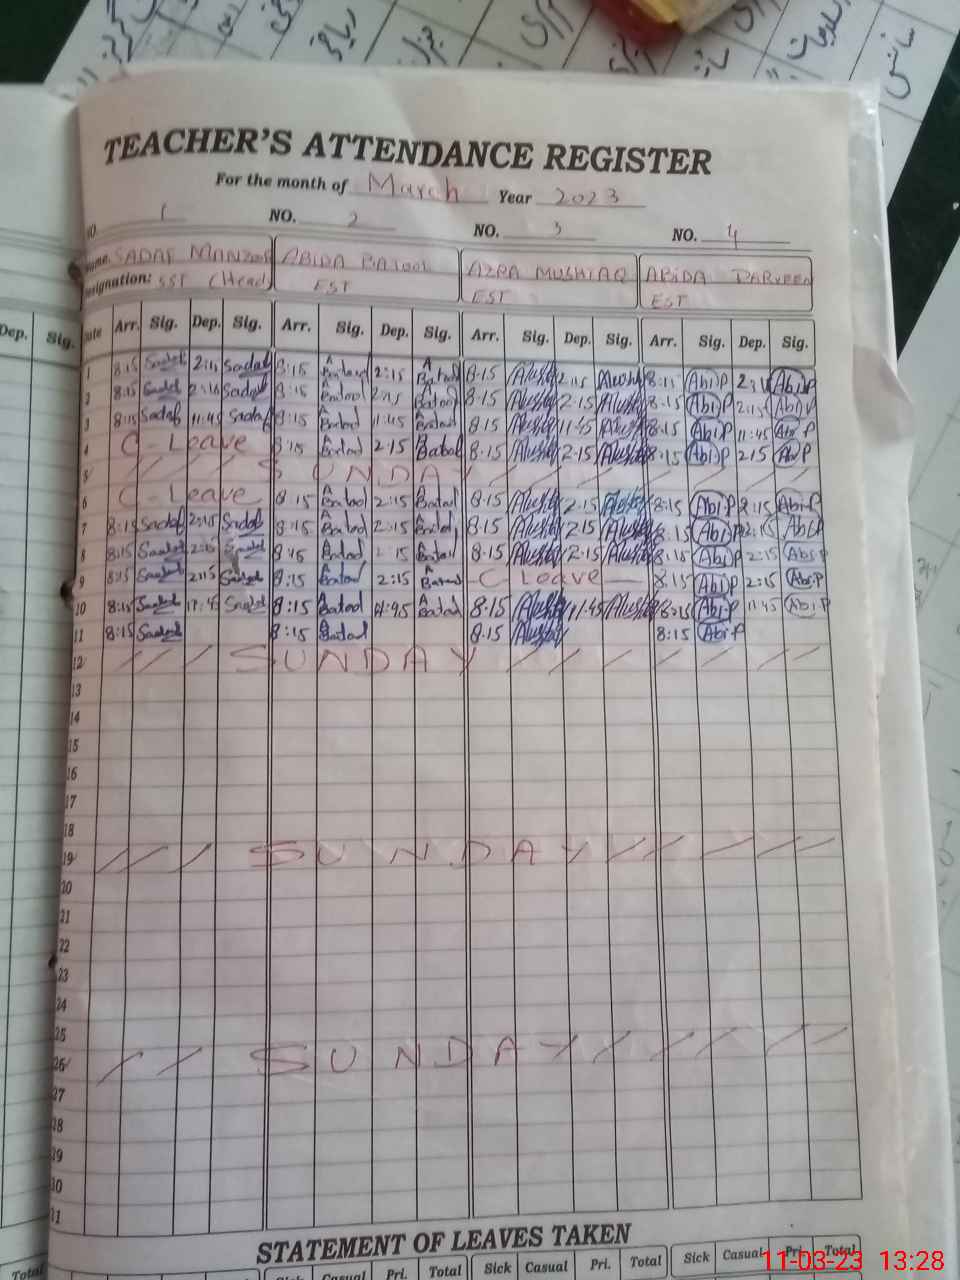 TEACHER'S ATTENDANCE REGISTER
For the month of March Year 2023
NO. 1 NO. 2 NO. 3 NO. 4
Name. SADAF MANZOOR ABIDA BATOOL AZRA MUSHTAQ ABIDA PARVEEN
Designation: SST (Head) EST EST EST
Dep. Sig. Date Arr. Sig. Dep. Sig. Arr. Sig. Dep. Sig. Arr. Sig. Dep. Sig. Arr. Sig. Dep. Sig.
1 8:15 Sadaf 2:15 Sadaf 8:15 A Batool 2:15 A Batool 8:15 2:15 8:15 Abi.P 2:15 Abi.P
2 8:15 Sadaf 2:15 Sadaf 8:15 A Batool 2:15 A Batool 8:15 2:15 8:15 Abi.P 2:15 Abi.P
3 8:15 Sadaf 11:45 Sadaf 8:15 A Batool 11:45 A Batool 8:15 11:45 8:15 Abi.P 11:45 Abi.P
4 C - Leave 8:15 A Batool 2:15 Batool 8:15 2:15 8:15 Abi.P 2:15 Abi.P
5 SUNDAY
6 C - Leave 8:15 A Batool 2:15 A Batool 8:15 2:15 8:15 Abi.P 2:15 Abi.P
7 8:15 Sadaf 2:15 Sadaf 8:15 A Batool 2:15 A Batool 8:15 2:15 8:15 Abi.P 2:15 Abi.P
8 8:15 Sadaf 2:15 Sadaf 8:15 A Batool 2:15 A Batool 8:15 2:15 8:15 Abi.P 2:15 Abi.P
9 8:15 Sadaf 2:15 Sadaf 8:15 A Batool 2:15 A Batool - C Leave - 8:15 Abi.P 2:15 Abi.P
10 8:15 Sadaf Sadaf 8:15 A Batool 11:45 A Batool 8:15 11:45 8:15 Abi.P 11:45 Abi.P
11 8:15 Sadaf 8:15 A Batool 8:15 8:15 Abi.P
12 SUNDAY
13
14
15
16
17
18
19 SUNDAY
20
21
22
23
24
25
26 SUNDAY
27
28
29
30
31
STATEMENT OF LEAVES TAKEN
Total Sick Casual Pri. Total Sick Casual Pri. Total Sick Casual Pri. Total
11-03-23 13:28